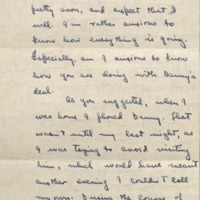 pretty soon, and expect that I
will. I'm rather anxious to
know how everything is going.
Especially, am I anxious to know
how you are doing with Danny's
deal.
As you suggested, when I
was home I phoned Danny. That
wasn't until my last night, as
I was trying to avoid visiting
him, which would have meant
another evening I couldn't call
my own. During the course of